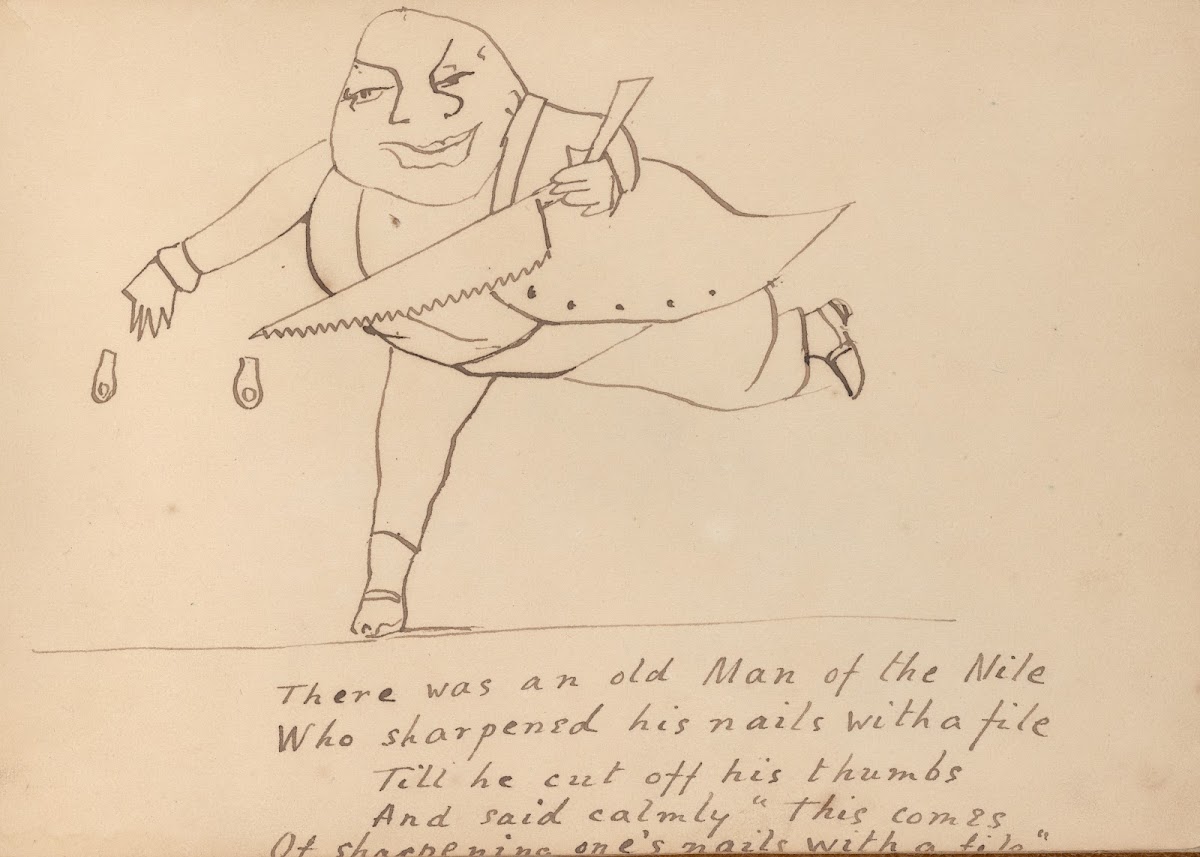 There was an old Man of the Nile
Who sharpened his nails with a file
Till he cut off his thumbs
And said calmly "This comes
Of sharpening one's nails with a file"